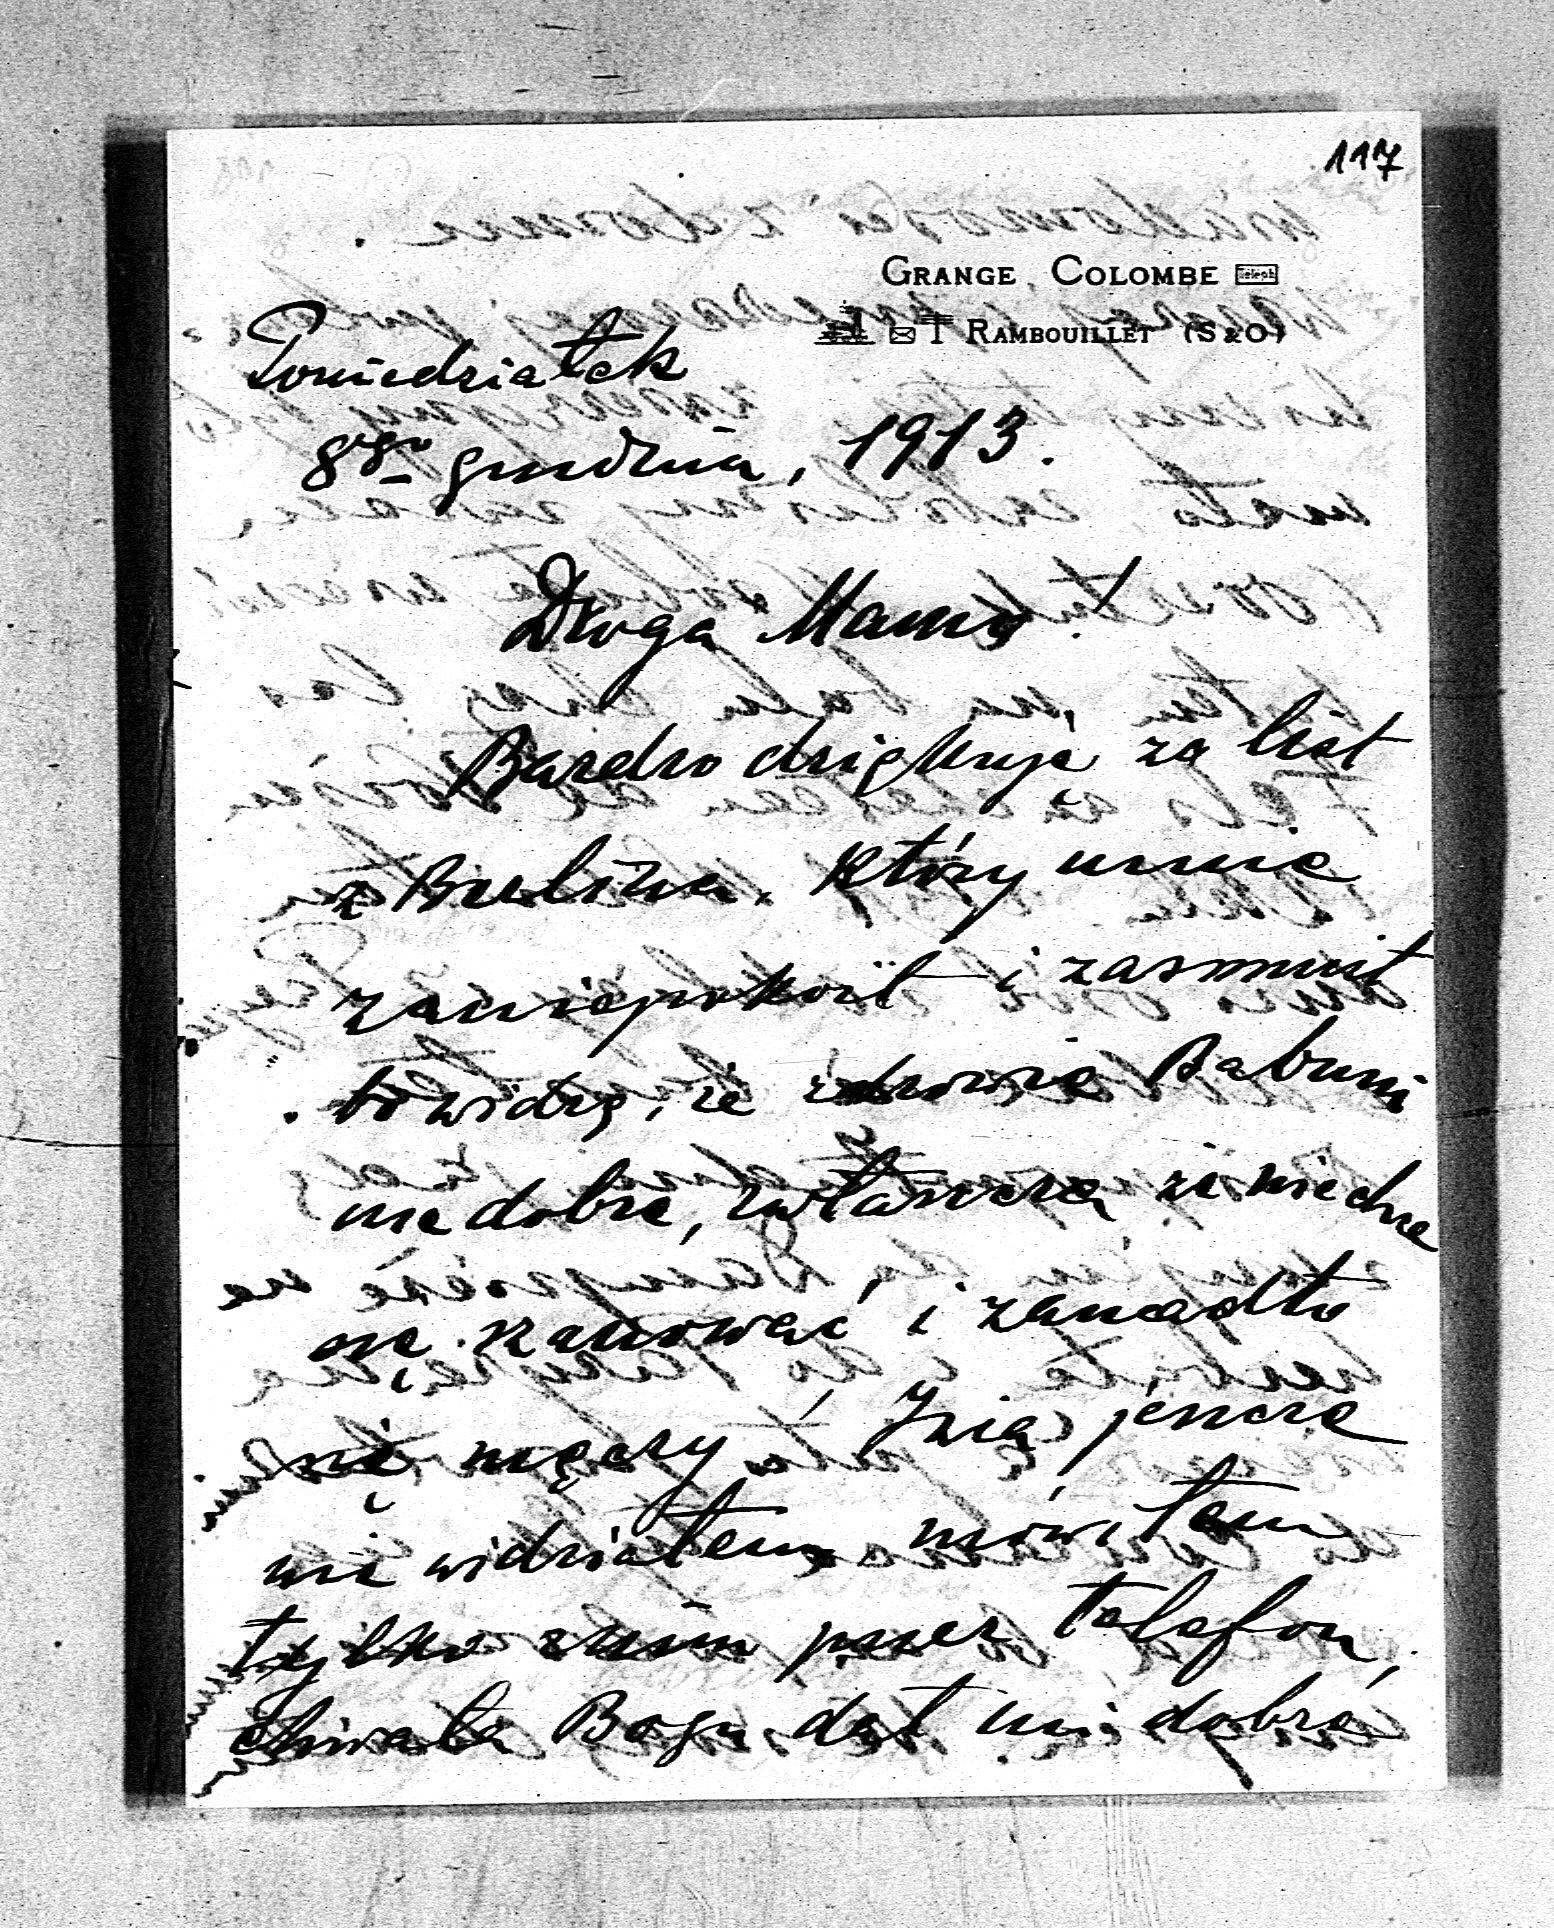 117
GRANGE COLOMBE Téleph
RAMBOUILLET (S & O)
Poniedziałek
8go grudnia, 1913.
Drogą Mamo!
Bardzo dziękuję za list
z Berlina, który mnie
zaniepokoił i zasmucił
bo widzę, że zdrowie Babuni
nie dobre, zwłaszcza że nie chce
się szanować i zanadto
się męczy. Izia jeszcze
nie widziałem, mówiłem
tylko z nim przez telefon,
chwała Bogu dał mi dobre